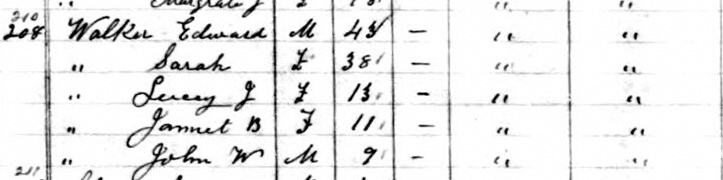 " Margrate J
210
208 Walker Edward M 43 — " "
" Sarah F 38 — " "
" Lucey J F 13 — " "
" Jannet B F 11 — " "
" John W M 9 — " "
211